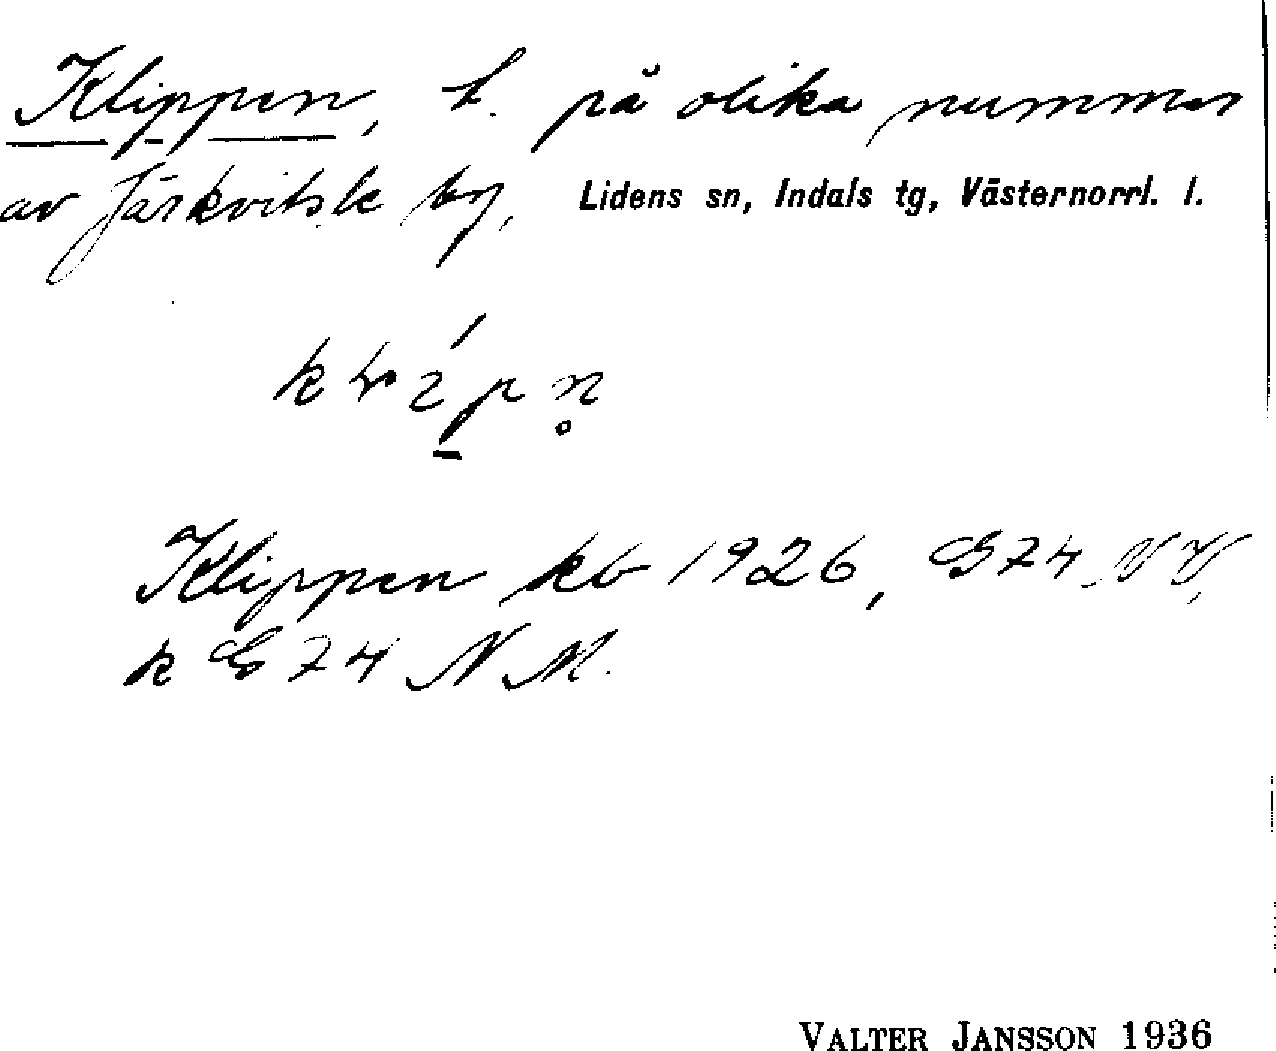 Klippen, t. på olika nummer
av Järkvitsle by, Lidens sn, Indals tg, Västernorrl. l.
Klippen kb 1926, G74 NV,
k G74 NM.
VALTER JANSSON 1936